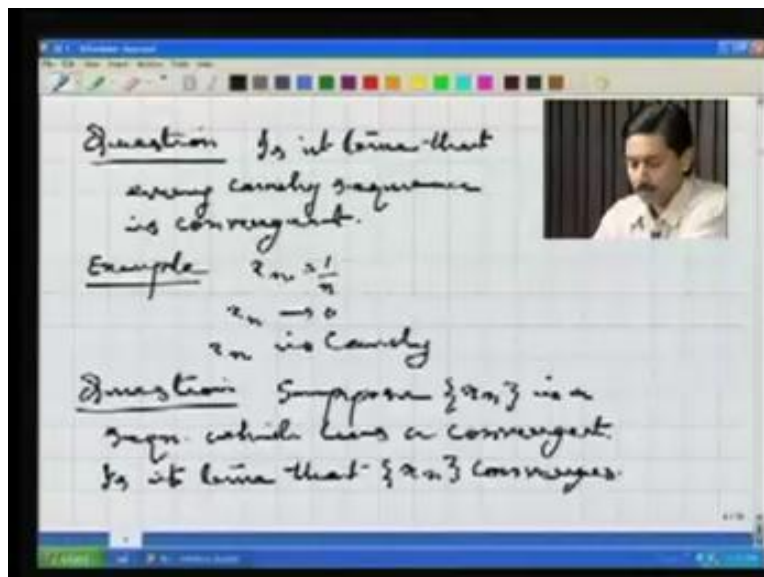 Question Is it true that
every cauchy sequence
is convergent.
Example x_n = 1/n
x_n → 0
x_n is Cauchy
Question Suppose {x_n} is a
seqn. which has a convergent.
Is it true that {x_n} converges.